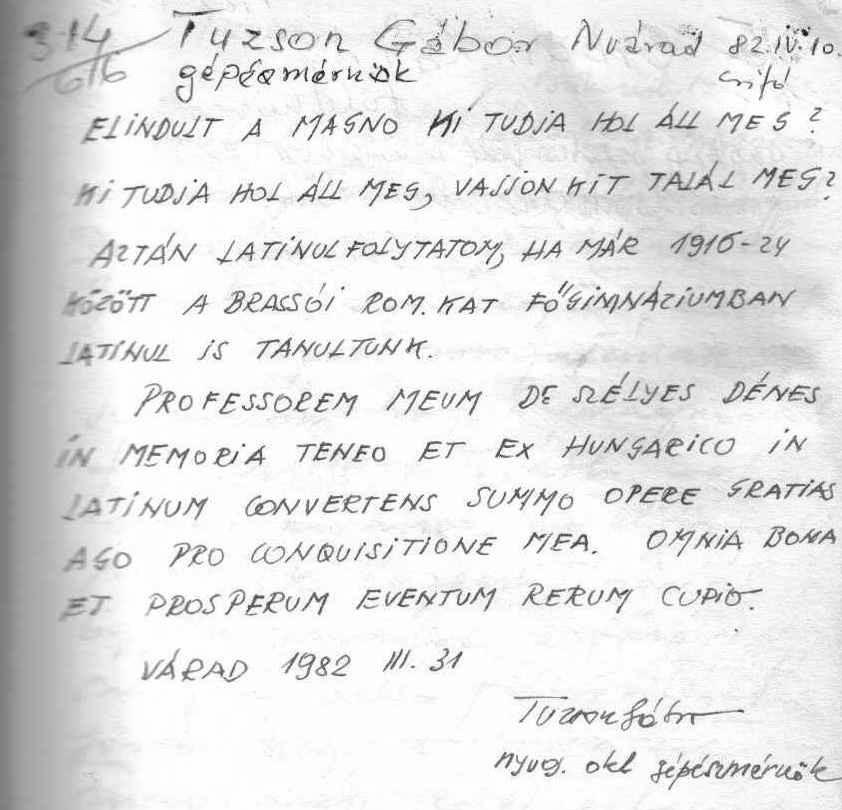 314 Tuzson Gábor Nvárad 82.IV.10.
616 gépészmérnök
ELINDULT A MAGNO KI TUDJA HOL ÁLL MEG?
KI TUDJA HOL ÁLL MEG, VAJJON KIT TALÁL MEG?
AZTÁN LATINUL FOLYTATOM, HA MÁR 1916-24
KÖZÖTT A BRASSÓI ROM. KAT FŐGIMNÁZIUMBAN
LATINUL IS TANULTUNK.
PROFESSOREM MEUM DE SZÉLYES DÉNES
IN MEMORIA TENEO ET EX HUNGARICO IN
LATINUM CONVERTENS SUMMO OPERE GRATIAS
AGO PRO CONQUISITIONE MEA. OMNIA BONA
ET PROSPERUM EVENTUM RERUM CUPIO.
VÁRAD 1982 III. 31
Tuzson Gábor
nyug. okl gépészmérnök